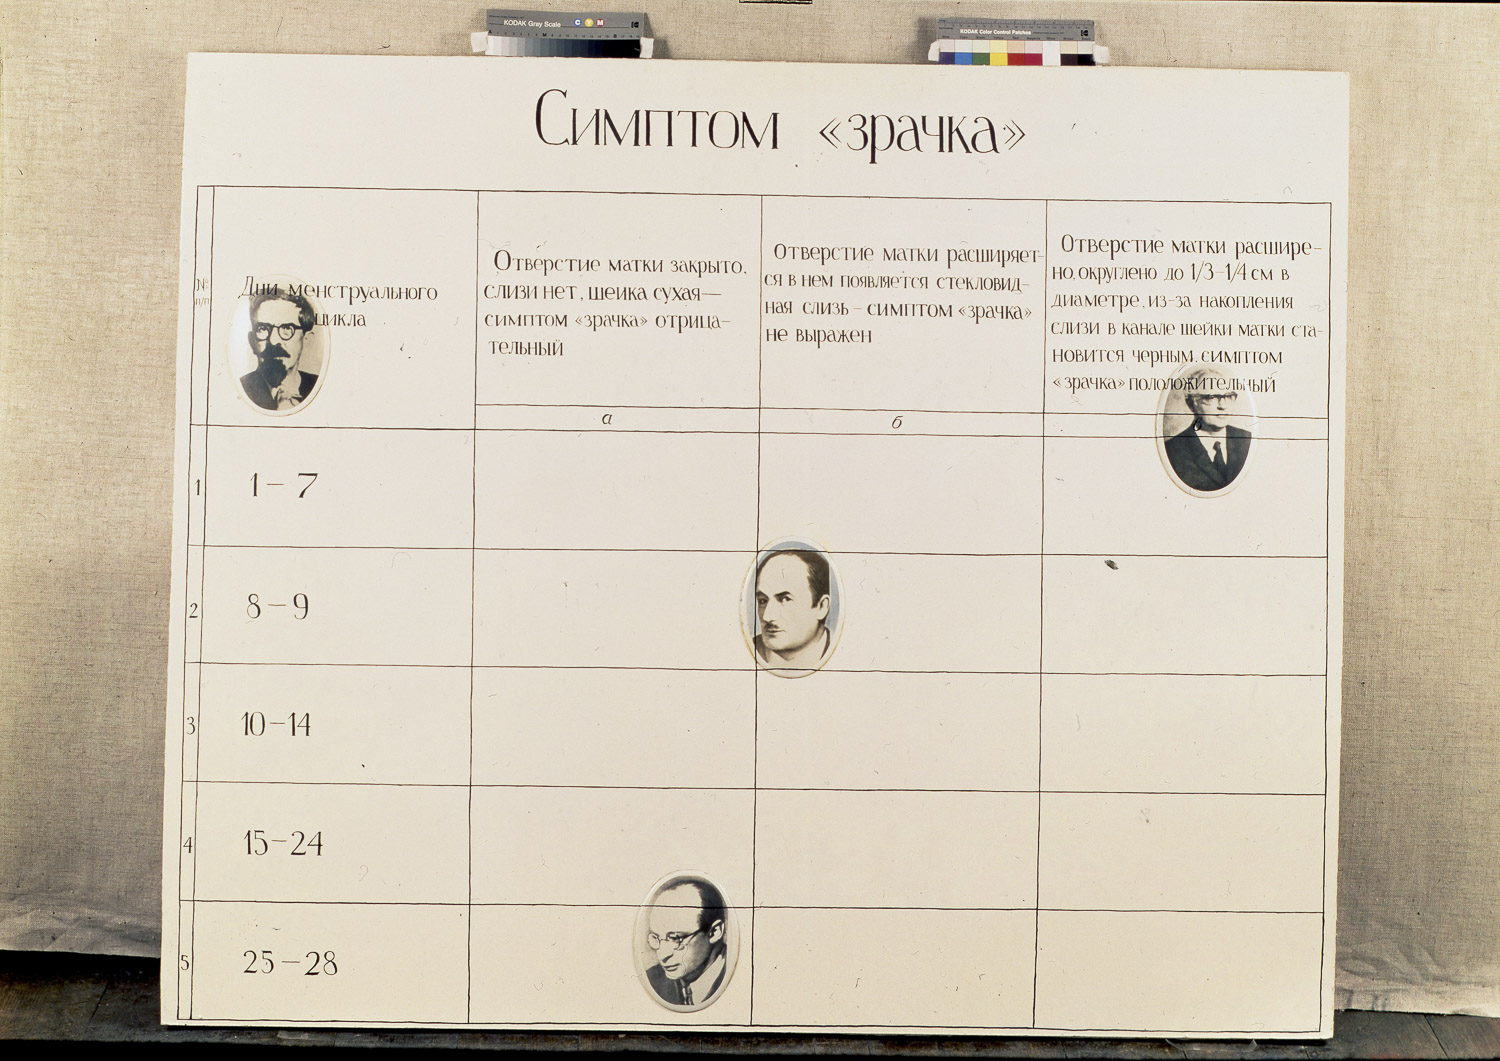 KODAK Gray Scale
C Y M
KODAK Color Control Patches
Симптом «зрачка»
№ п/п
Дни менструального
цикла
Отверстие матки закрыто,
слизи нет, шейка сухая—
симптом «зрачка» отрица–
тельный
Отверстие матки расширяет–
ся в нем появляется стекловид–
ная слизь – симптом «зрачка»
не выражен
Отверстие матки расшире–
но, округлено до 1/3–1/4 см в
диаметре, из-за накопления
слизи в канале шейки матки ста–
новится черным, симптом
«зрачка» пололожительный
а
б
1
1–7
2
8–9
3
10–14
4
15–24
5
25–28